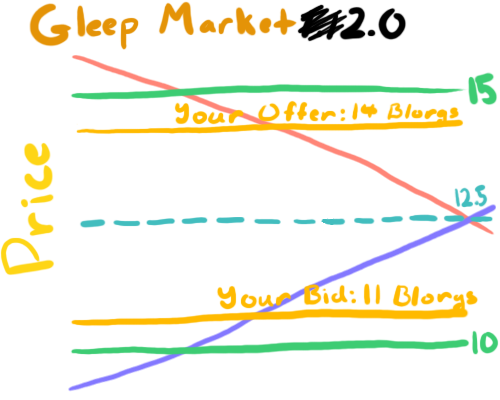 Gleep Market 2.0
15
Your Offer: 14 Blorgs
Price
12.5
Your Bid: 11 Blorgs
10